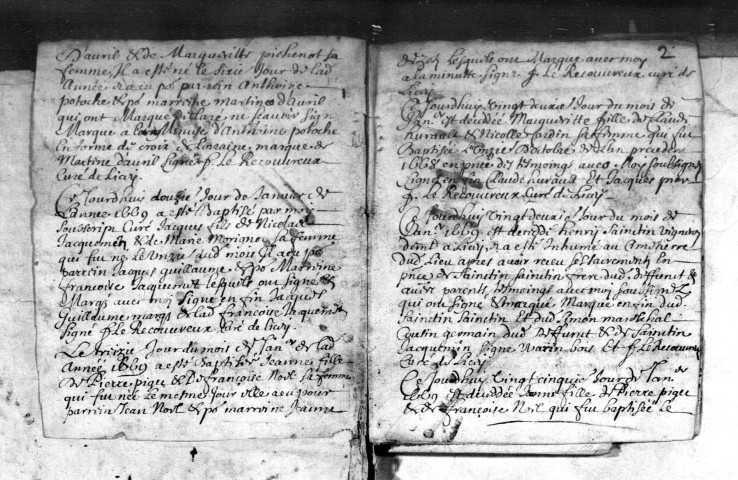 D'avril & de Margueritte pichenot sa
femme, Il a esté né le sixie Jour de lad
Année a eu po parein Anthoine
potoche & po marreine Martine d'avril
qui ont Marqué ne scavoir sign
Marque a la Minute d'Antoine potoche
en forme de croix de Lorraine, marque de
Martine d'avril Signé f. Le Recouvreux
Curé de Licey
Ce Jourdhuy douzie Jour de Janvier de
Lannee 1669 a esté Baptisé par moy
Soubscrip Curé Jacques fils de Nicolas
Jacquemin & de Marie Morigny sa femme
qui fut né le dud mois Il a eu po
parrein Jacques guillaume & po Marreine
francoise Jacquemin lesquels ont signé &
Marqs avec moy Signé en fin Jacques
Guillaume marqs de lad francoise Jacquemin
signé f. Le Recouvreux Curé de licey
Le Jour du mois de Janr de lad
Annee 1669 a esté Baptisée Jeanne fille
de Pierre pigu & de francoise Noel sa femme
qui fut née le mesme Jour elle a eu pour
parrein Jean Noel & po marreine Jeanne
2
lesquels ont Marqué avec moy
a la minutte signé f. Le Recouvreux curé de
Licey
Ce Jourdhuy vingt deuxie Jour du mois de
Janr est decedée Margueritte fille de Claude
hurault & Nicolle Jardin sa femme qui fut
Baptisée L'unzie d'octobre de L'an precedent
1668 en pnce des tesmoings avec Moy soubsigné
Signé en fin Claude hurault et Jacques
f. Le Recouvreux Curé de Licey
Ce Jourdhuy Vingt deuxie Jour du mois de
Janr 1669 est decedé henry Sainctin vigneron
demt a Licey & a esté Inhumé au Cimetierre
dud Lieu apres avoir receu ses sacrements en
pnce de Sainctin Sainctin frere dud deffunct &
autres parents tesmoings avec moy soubsignez
qui ont signé & marqué Marque en fin dud
Sainctin Sainctin Et dud Simon mareschal
Cousin germain dud Deffunct & de Sainctin
Jacquemin signé Warin bois et f. Le Recouvreux
Curé de Licey
Ce Jourdhuy Vingt cinquie Jour de Janr
1669 est decedée Jeanne fille de Pierre pigu
& de francoise Noel qui fut baptisée le